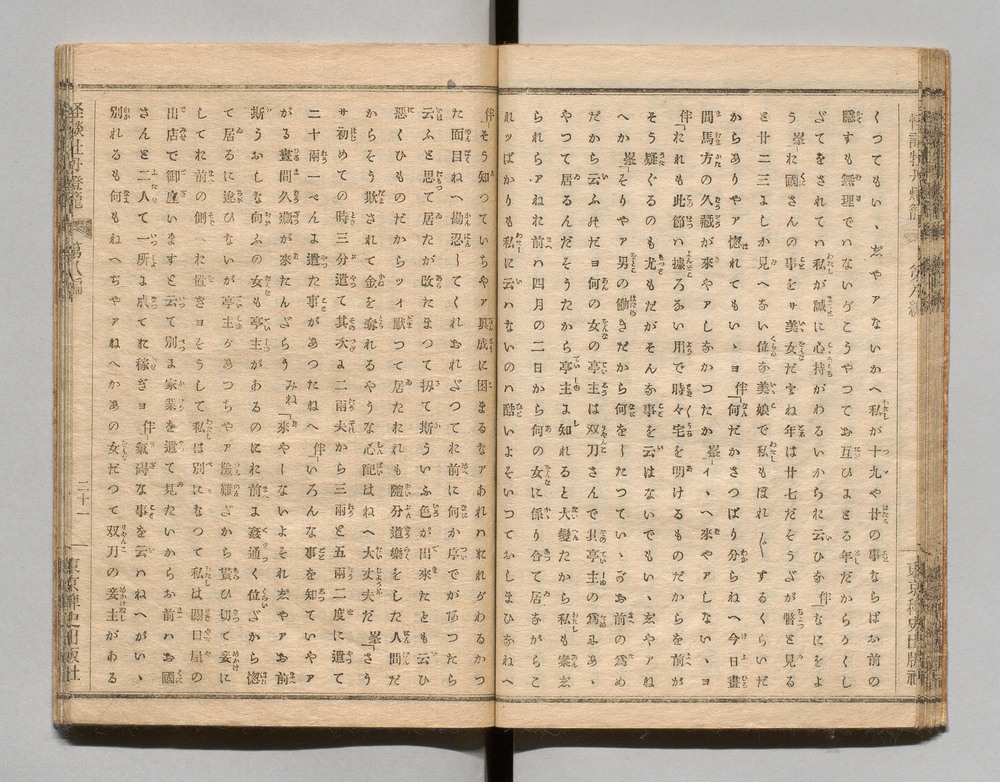 くつてもい、玄やアないかへ私が十九や廿の事ならばお前の
隱すも無理でハないがこうやつてお互ひよとる年だからかくし
ざてをされてハ私が誠に心持がわるいからに云ひな 伴「なにをよ
う峯「れ國さんの事をサ美女だをね年は廿七だそうだが瞥と見る
と廿二三よしか見へない位な美娘で私もほれ〳〵するくらいだ
からありやア惚れてもいゝヨ 伴「何だかさつぱり分らねへ今日晝
間馬方の久藏が來やアしなかつたか 峯「イヽへ來やアしないヽヨ
伴「れれも此節ハ據ろない用で時々宅を明けるものだからを前が
そう疑ぐるのも尤もだがそんな事を云はないでもいゝ玄やアね
へか 峯「そりやア男の働きだから何をーたつていゝがお前の爲め
だから云ふれだヨ何の女の亭主は双刀さんで其亭主の爲よあゝ
やつて居るんだそうたから亭主よ知れると大變だから私も案玄
られらアねれ前ハ四月の二日から何の女に係り合て居ながらこ
れッぱかりも私に云ハないのハ酷いよそいつておしまひなねへ
伴そう知つていちやア眞成に困まるなアあれハれれがわるかつ
た面目ねへ勘忍ーてくれおれだつてれ前に何か序でがあつたら
云ふと思て居たが改たまつて扨て斯ういふ色が出來たとも云ひ
惡くひものだからツイ默つて居たれれも隨分道樂をした人間だ
からそう欺されて金を奪れるやうな心配はねへ大丈夫だ 峯「さう
サ初めての時三分遣て其次よ二兩夫から三兩と五兩二度に遣て
二十兩一ぺんよ遣た事があつたねへ 伴「いろんな事を知ていやア
がる晝間久藏が來たんざらう みね「來やーないよそれ玄やアお前
斯うおしな向ふの女も亭主があるのにれ前よ姦通く位ざから惚
て居るに違ひないが亭主があつちやア險難ざから貰ひ切て妾に
してれ前の側へれ置きヨそうして私は別になつて私は關口屋の
出店で御座いますと云て別よ家業を遣て見たいからお前ハお國
さんと二人で一所よ成てれ稼ぎヨ 伴「氣障な事を云ハねへがいゝ
別れるも何もねへぢやアねへかあの女だつて双刀の妾主がある
第八編
三十一
東京稗史出版社